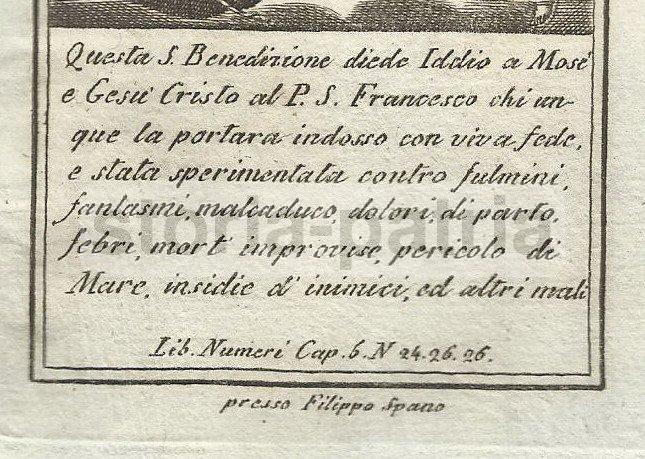 Questa S. Benedizione diede Iddio a Mosé
e Gesu' Cristo al P. S. Francesco chi un-
que la portara indosso con viva fede,
e stata sperimentata contro fulmini,
fantasmi, malcaduco, dolori di parto,
febri, mort' improvise, pericolo di
Mare, insidie d' inimici, ed altri mali
Lib. Numeri Cap. 6. N 24. 26. 26.
presso Filippo Spano
storia-patria